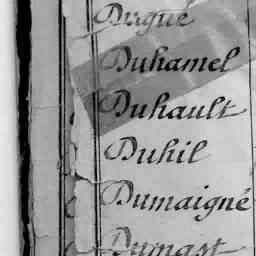 Dugué
Duhamel
Duhault
Duhil
Dumaigné
Dumast